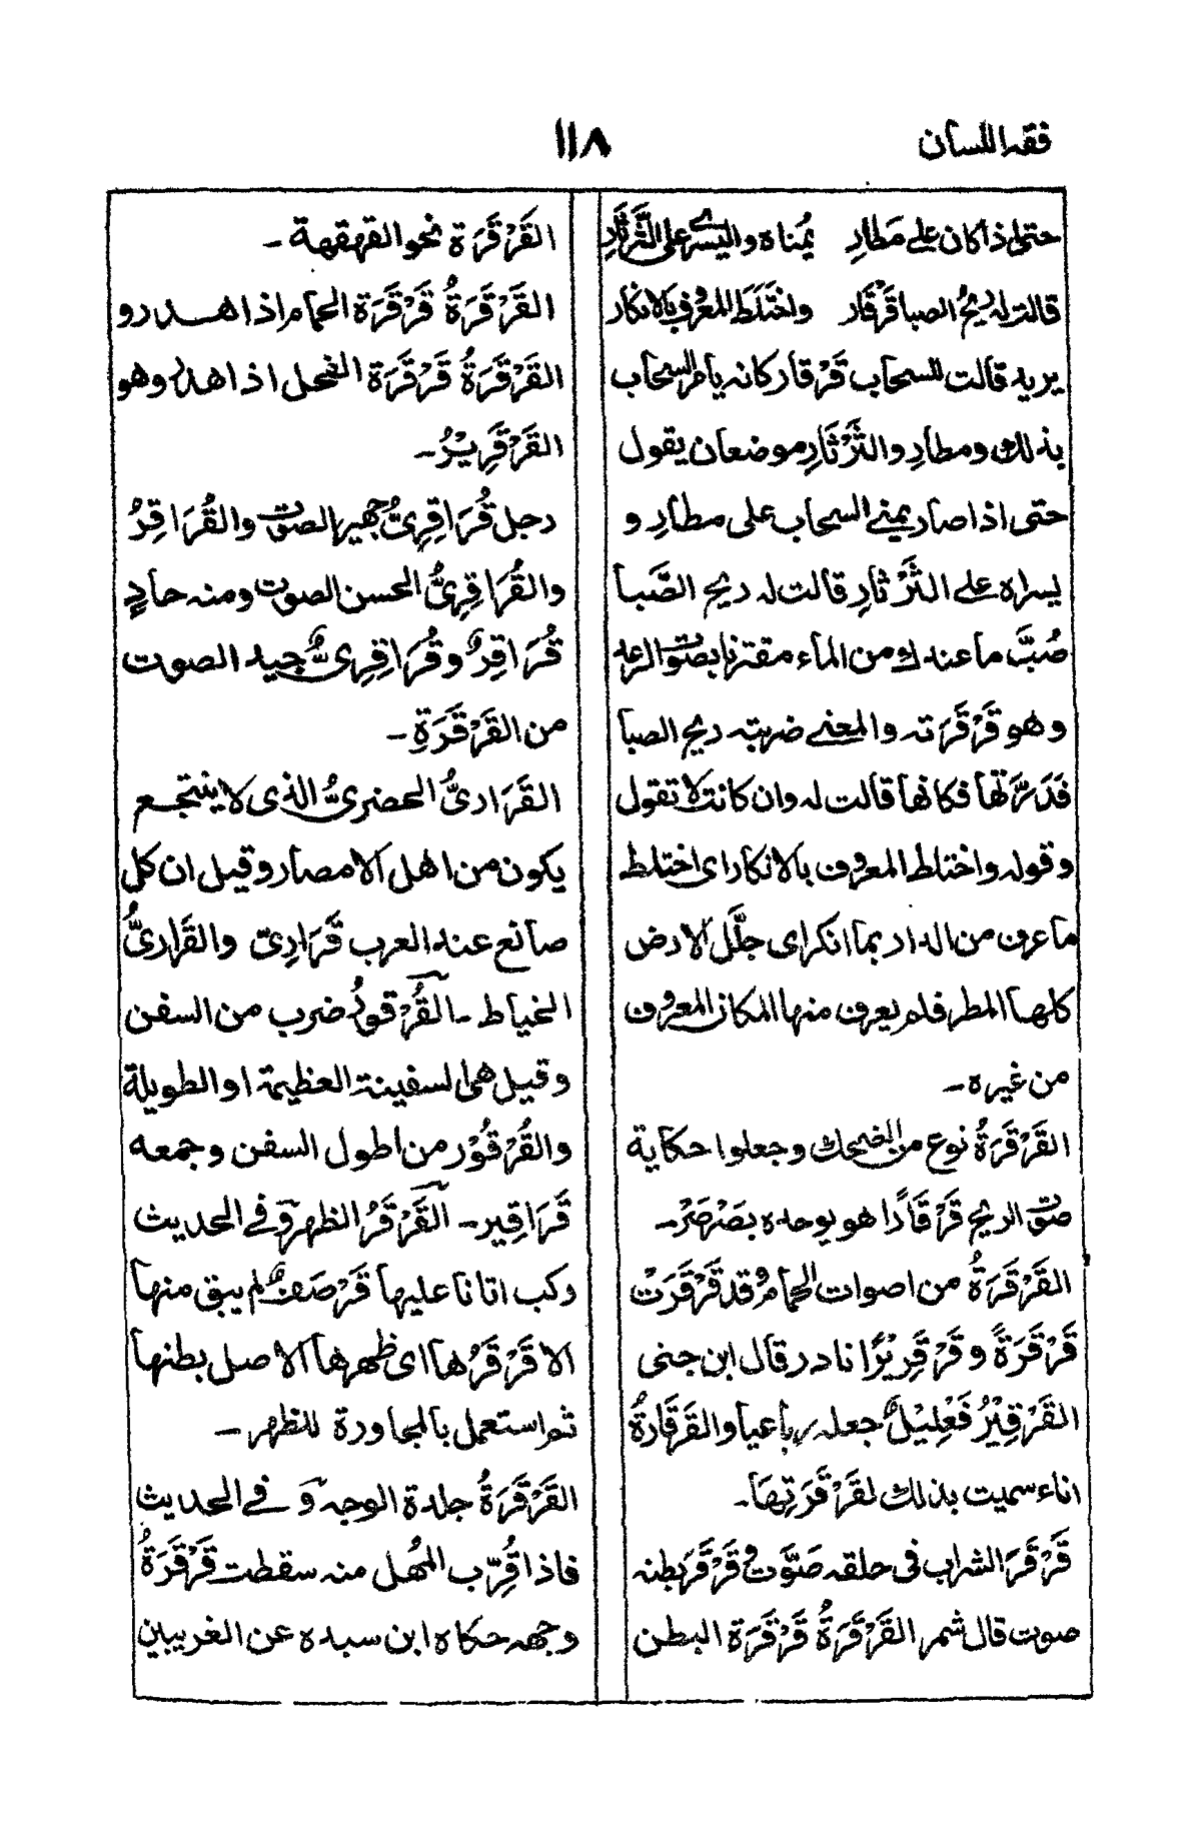 فقه اللسان
١١٨
حتى اذا كان على مَطارِ يُمناه واليسرى على الثَّرثارِ
قالت له ريحُ الصبا قَرْقَار واختَلَطَ المعروف بالانكار
يريد قالت للسحاب قَرْقار كانه يامر السحاب
بذلك ومطارِ والثَّرْثَارِ موضعان يقول
حتى اذا صار يمنى السحاب على مطارِ و
يسراه على الثَّرْثارِ قالت له ريح الصَّبا
صُبَّ ما عندك من الماء مقترنا بصوت الرعد
وهو قَرْقَرَته والمعنى ضربته ريح الصبا
فَدَرَّتْها فكانها قالت له وان كانت لا تقول
وقوله واختلط المعروف بالانكار اى اختلط
ما عرف من الدار بما انكر اى جلَّل الارض
كلها المطر فلم يعرف منها المكان المعروف
من غيره ـ
القَرْقَرَةُ نوع من الضحك وجعلوا حكاية
صوت الريح قَرْقَارًا هو يوحده بصَرْصَرْ ـ
القَرْقَرَةُ من اصوات الحمام وقد قَرْقَرَتْ
قَرْقَرَةً وقَرْقَرِيْرًا نادر قال ابن جنى
القَرْقِيْرُ فَعْلِيْلٌ جعله رباعيا والقَرقَارةُ
اناء سميت بذلك لقَرْقَرَتِهَا ـ
قَرْقَرَ الشراب فى حلقه صَوَّت وقَرْقَرَ بطنه
صوت قال شمر القَرْقَرَةُ قَرْقَرَة البطن
القَرْقَرَة نحو القهقهة ـ
القَرْقَرَةُ قَرْقَرَة الحمام اذا هدر و
القَرْقَرَةُ قَرْقَرَة الفحل اذا هدر وهو
القَرْقَرِيْرُ ـ
رجل قُرَاقِرِىٌّ جهير الصوت والقُرَاقِرُ
والقُرَاقِرِىُّ الحسن الصوت ومنه حادٍ
قُرَاقِرٌ وقُرَاقِرِىٌّ جيد الصوت
من القَرْقَرَةِ ـ
القَرَارىُّ الحضرىُّ الذى لا ينتجع
يكون من اهل الامصار وقيل ان كل
صانع عند العرب قَرَارِىّ والقَرارىُّ
الخياط ـ القُرْقورُ ضرب من السفن
وقيل هى السفينة العظيمة او الطويلة
والقُرْقُوْر من اطول السفن وجمعه
قَرَاقِير ـ القَرْقَرُ الظهر وفى الحديث
ركب اتانا عليها قَرْصَفٌ لم يبق منها
الا قَرْقَرُها اى ظهرها الاصل بطنها
ثم استعمل بالمجاورة للظهر ـ
القَرْقَرَةُ جلدة الوجه وفى الحديث
فاذا قُرِّب المُهل منه سقطت قَرْقَرَةُ
وجهه حكاه ابن سيده عن الغريبين